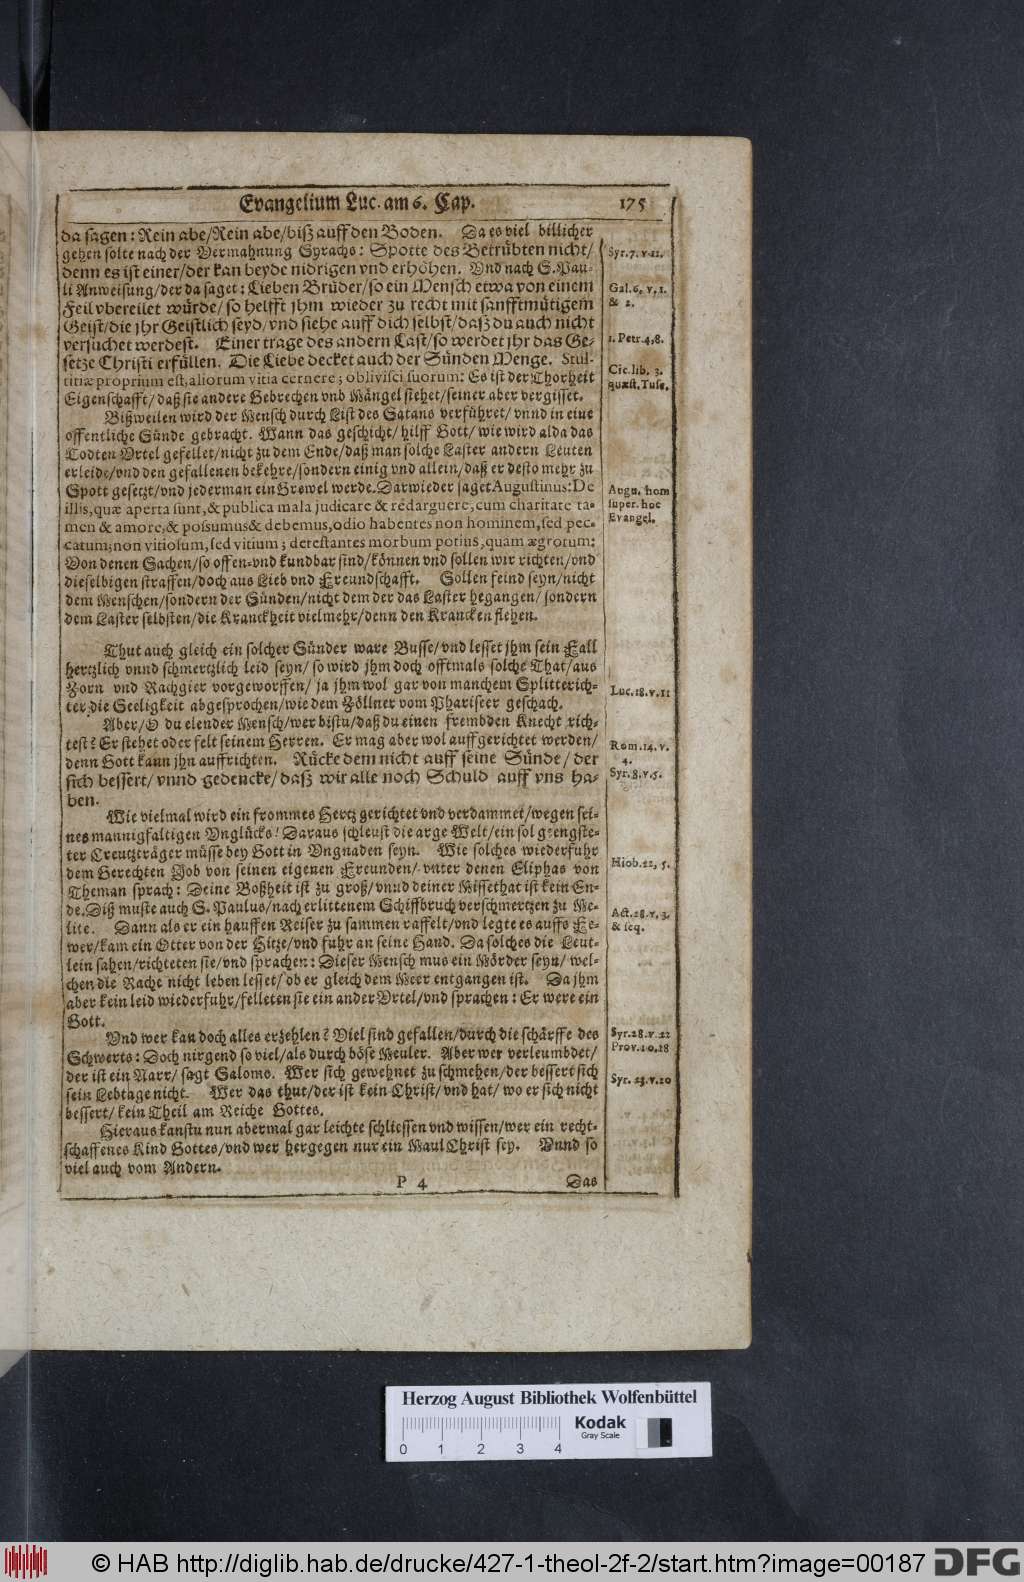 Evangelium Luc. am 6. Cap. 175
da sagen: Rein abe/Rein abe/biß auff den Boden. Da es viel billicher
gehen solte nach der Vermahnung Syrachs: Spotte des Betrübten nicht/
denn es ist einer/der kan beyde nidrigen vnd erhöhen. Vnd nach S. Pau-
li Anweisung/der da saget: Lieben Brüder/so ein Mensch etwa von einem
Feil vbereilet würde/so helfft jhm wieder zu recht mit sanfftmütigem
Geist/die jhr Geistlich seyd/vnd siehe auff dich selbst/daß du auch nicht
versuchet werdest. Einer trage des andern Last/so werdet jhr das Ge-
setze Christi erfüllen. Die Liebe decket auch der Sünden Menge. Stul-
titiæ proprium est, aliorum vitia cernere; oblivisci suorum: Es ist der Thorheit
Eigenschafft/daß sie andere Gebrechen vnd Mängel siehet/seiner aber vergisset.
Bißweilen wird der Mensch durch List des Satans verführet/vnnd in eine
offentliche Sünde gebracht. Wann das geschicht/hilff Gott/wie wird alda das
Todten Vrtel gefellet/nicht zu dem Ende/daß man solche Laster andern Leuten
erleide/vnd den gefallenen bekehre/sondern einig vnd allein/daß er desto mehr zu
Spott gesetzt/vnd jederman ein Grewel werde. Darwieder saget Augustinus: De
illis, quæ aperta sunt, & publica mala judicare & redarguere, cum charitate ta-
men & amore, & possumus & debemus, odio habentes non hominem, sed pec-
catum; non vitiosum, sed vitium; detestantes morbum potius, quam ægrotum:
Von denen Sachen/so offen- vnd kundbar sind/können vnd sollen wir richten/vnd
dieselbigen straffen/doch aus Lieb vnd Freundschafft. Sollen feind seyn/nicht
dem Menschen/sondern der Sünden/nicht dem der das Laster begangen/sondern
dem Laster selbsten/die Kranckheit vielmehr/denn den Krancken fliehen.
Thut auch gleich ein solcher Sünder ware Busse/vnd lesset jhm sein Fall
hertzlich vnnd schmertzlich leid seyn/so wird jhm doch offtmals solche That/aus
Zorn vnd Rachgier vorgeworffen/ja jhm wol gar von manchem Splitterich-
ter die Seeligkeit abgesprochen/wie dem Zöllner vom Phariseer geschach.
Aber/O du elender Mensch/wer bistu/daß du einen frembden Knecht rich-
test? Er stehet oder felt seinem Herren. Er mag aber wol auffgerichtet werden/
denn Gott kann jhn auffrichten. Rücke dem nicht auff seine Sünde/der
sich bessert/vnnd gedencke/daß wir alle noch Schuld auff vns ha-
ben.
Wie vielmal wird ein frommes Hertz gerichtet vnd verdammet/wegen sei-
nes mannigfaltigen Vnglücks! Daraus schleust die arge Welt/ein sol geengste-
ter Creutzträger müsse bey Gott in Vngnaden seyn. Wie solches wiederfuhr
dem Gerechten Job von seinen eigenen Freunden/vnter denen Eliphas von
Theman sprach: Deine Boßheit ist zu groß/vnnd deiner Missethat ist kein En-
de. Diß muste auch S. Paulus/nach erlittenem Schiffbruch verschmertzen zu Me-
lite. Dann als er ein hauffen Reiser zusammen raffelt/vnd legte es auffs Fe-
wer/kam ein Otter von der Hitze/vnd fuhr an seine Hand. Da solches die Leut-
lein sahen/richteten sie/vnd sprachen: Dieser Mensch mus ein Mörder seyn/wel-
chen die Rache nicht leben lesset/ob er gleich dem Meer entgangen ist. Da jhm
aber kein leid wiederfuhr/felleten sie ein ander Vrtel/vnd sprachen: Er were ein
Gott.
Vnd wer kan doch alles erzehlen? Viel sind gefallen/durch die schärffe des
Schwerts: Doch nirgend so viel/als durch böse Meuler. Aber wer verleumbdet/
der ist ein Narr/sagt Salomo. Wer sich gewehnet zu schmehen/der bessert sich
sein Lebtage nicht. Wer das thut/der ist kein Christ/vnd hat/wo er sich nicht
bessert/kein Theil am Reiche Gottes.
Hieraus kanstu nun abermal gar leichte schliessen vnd wissen/wer ein recht-
schaffenes Kind Gottes/vnd wer hergegen nur ein Maul Christ sey. Vnnd so
viel auch vom Andern.
P 4 Das
Syr. 7. v. 12.
Gal. 6. v. 1.
& 2.
1. Petr. 4, 8.
Cic. lib. 3.
quæst. Tusc.
Augu. hom
super. hoc
Evangel.
Luc. 18. v. 11
Rom. 14. v.
4.
Syr. 8. v. 5.
Hiob. 22, 5.
Act. 28. v. 3.
& seq.
Syr. 28. v. 22
Prov. 10. 18
Syr. 23. v. 20
Herzog August Bibliothek Wolfenbüttel
Kodak
Gray Scale
0 1 2 3 4
© HAB http://diglib.hab.de/drucke/427-1-theol-2f-2/start.htm?image=00187
DFG